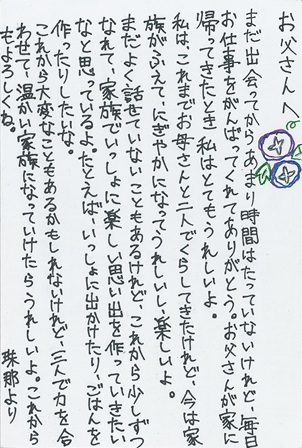 お父さんへ
まだ出会ってからあまり時間はたっていないけれど、毎日
お仕事をがんばってくれてありがとう。お父さんが家に
帰ってきたとき、私はとてもうれしいよ。
私は、これまでお母さんと二人でくらしてきたけれど、今は家
族がふえて、にぎやかになってうれしいし、楽しいよ。
まだよく話せていないこともあるけれど、これから少しずつ
なれて、家族でいっしょに楽しい思い出を作っていきたい
なと思っているよ。たとえば、いっしょに出かけたり、ごはんを
作ったりしたいな。
これから大変なこともあるかもしれないけれど、三人で力を合
わせて、温かい家族になっていけたら、うれしいよ。これから
もよろしくね。
珠那より